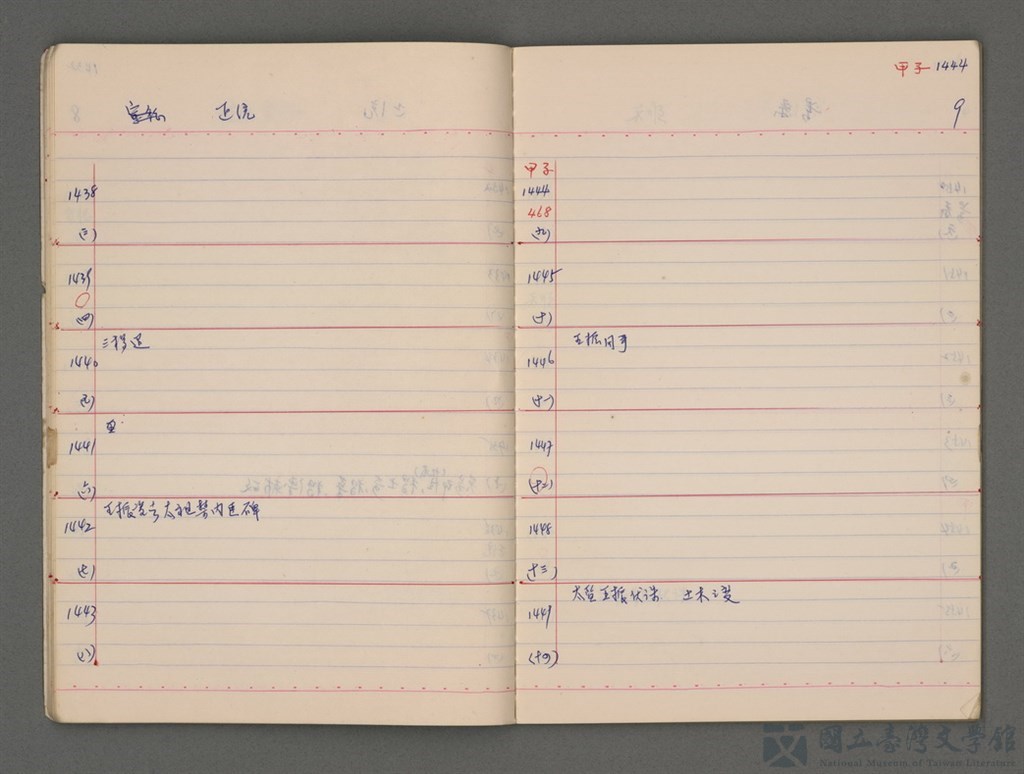 正統
1438
(三)
1439
(四)
三楊退
1440
(五)
1441
(六)
王振盜去太祖禁內臣碑
1442
(七)
1443
(八)
甲子 1444
9
甲子
1444
468
(九)
1445
(十)
1446
(十一)
1447
(十二)
1448
(十三)
太監王振伏誅 土木之變
1449
(十四)
國立臺灣文學館
National Museum of Taiwan Literature